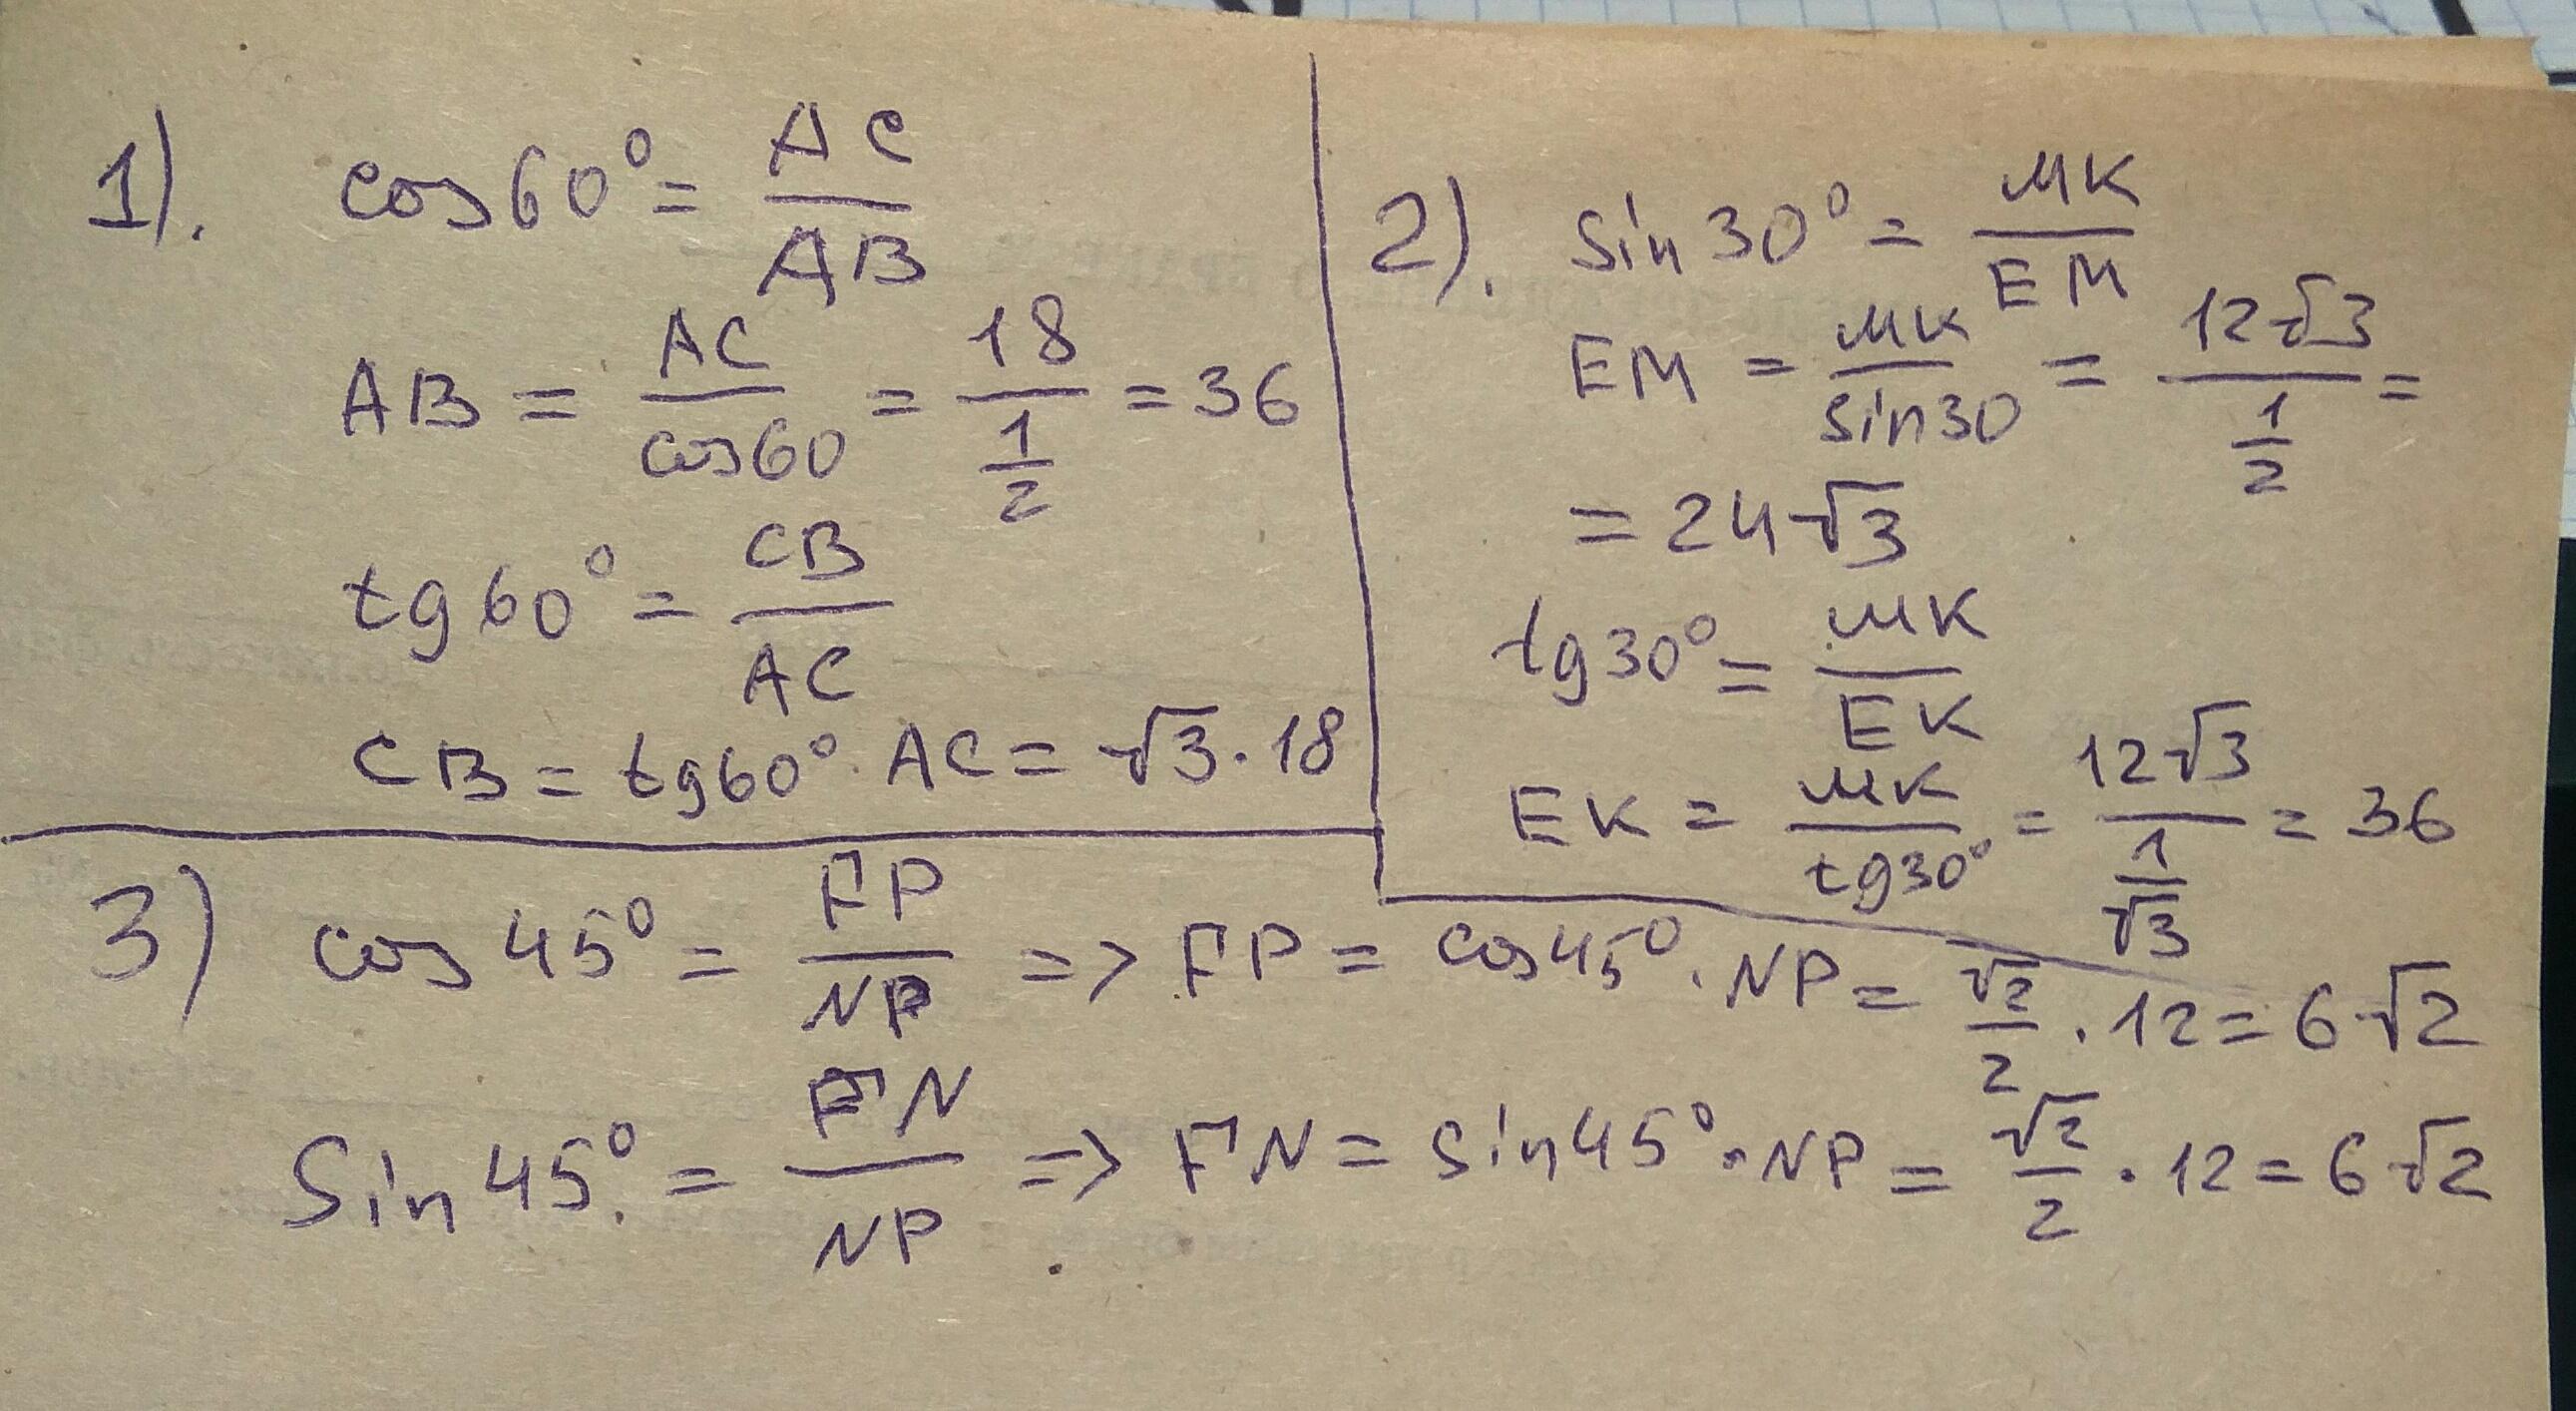 1). cos60° = AC/AB
AB = AC/cos60 = 18/(1/2) = 36
tg60° = CB/AC
CB = tg60° · AC = √3 · 18
2). sin30° = MK/EM
EM = MK/sin30 = 12√3/(1/2) =
= 24√3
tg30° = MK/EK
EK = MK/tg30° = 12√3/(1/√3) = 36
3) cos45° = FP/NP => FP = cos45° · NP = √2/2 · 12 = 6√2
Sin45° = FN/NP => FN = sin45° · NP = √2/2 · 12 = 6√2